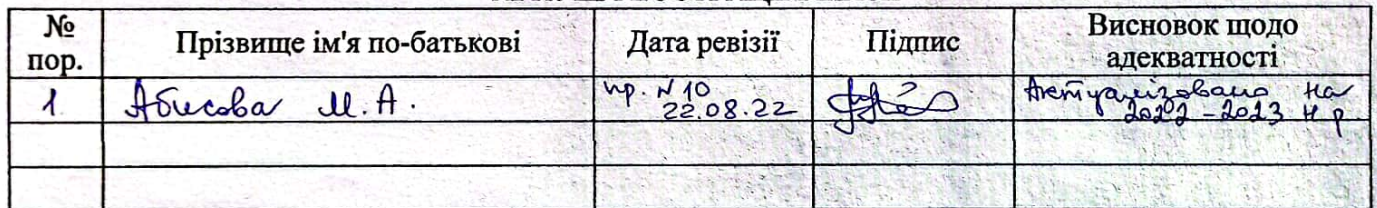 № пор. Прізвище ім'я по-батькові Дата ревізії Підпис Висновок щодо адекватності
1. Абисова М.А. пр. №10 22.08.22 Актуалізовано на 2022-2023 н р.